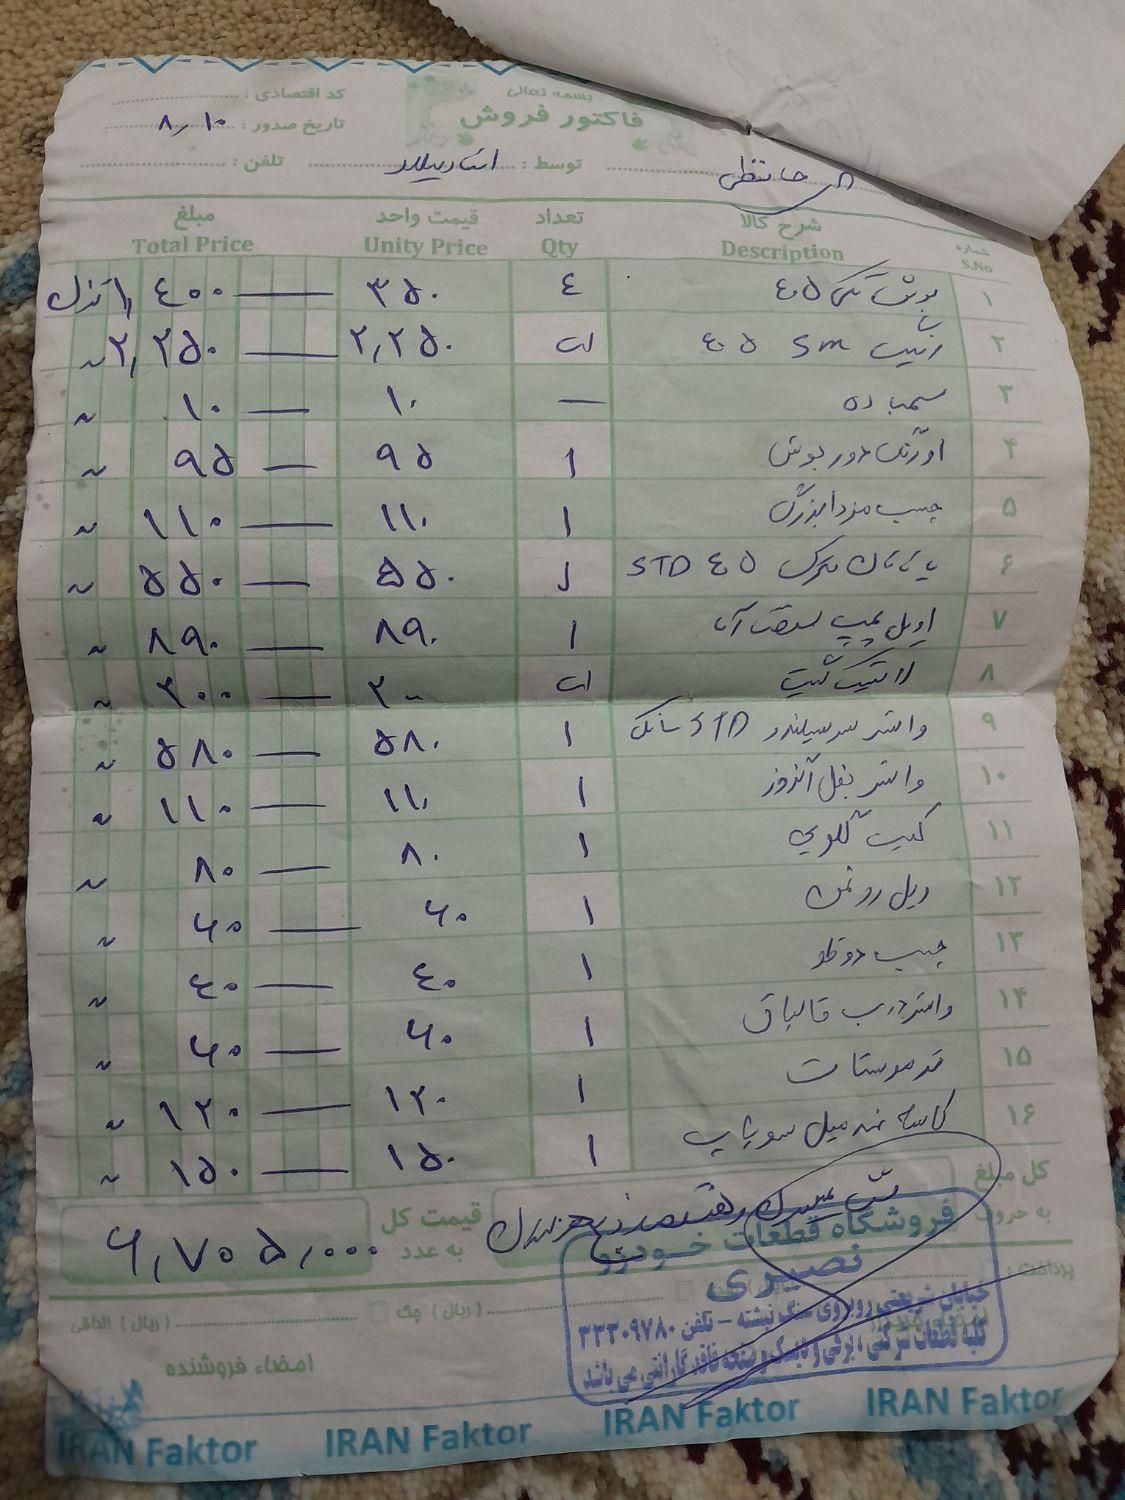 بسمه تعالی
فاکتور فروش
کد اقتصادی :
تاریخ صدور : ۸٫۱۰
توسط : تلفن :
شماره S.No شرح کالا Description تعداد Qty قیمت واحد Unity Price مبلغ Total Price
۱ بوش تکی ۴۰۵ ٤ ۳۵۰ ۱٫٤۰۰
۲ 5m ۴۰۵ ۲٫۲۵۰ ۲٫۲۵۰ 〃
۳ سمباده — ۱۰ ۱۰ 〃
۴ اورینگ دور بوش ۱ ۹۵ ۹۵ 〃
۵ چسب مزدا بزرگ ۱ ۱۱۰ ۱۱۰ 〃
۶ یاتاقان متحرک ٤۰۵ STD ۱ ۵۵۰ ۵۵۰ 〃
۷ اویل پمپ ۱ ۸۹۰ ۸۹۰ 〃
۸ ۲۰۰ ۲۰۰ 〃
۹ واشر سرسیلندر STD ۱ ۵۸۰ ۵۸۰ 〃
۱۰ واشر بغل اگزوز ۱ ۱۱۰ ۱۱۰ 〃
۱۱ کیت گلویی ۱ ۸۰ ۸۰ 〃
۱۲ ۱ ۶۰ ۶۰ 〃
۱۳ چسب دوقلو ۱ ٤۰ ٤۰ 〃
۱۴ واشر درب قالپاق ۱ ۶۰ ۶۰ 〃
۱۵ ترموستات ۱ ۱۲۰ ۱۲۰ 〃
۱۶ کاسه نمد میل سوپاپ ۱ ۱۵۰ ۱۵۰ 〃
کل مبلغ به حروف
قیمت کل به عدد ۶٫۷۰۵٫۰۰۰
فروشگاه قطعات خودرو
نصیری
خیابان شریعتی روبروی سنگ نبشته - تلفن ۳۳۳۰۹۷۸۰
کلیه قطعات شرکتی ، برقی و دیسک و صفحه فاقد گارانتی می باشد
پرداخت :
(ریال) چک
(ریال) الباقی
امضاء فروشنده
IRAN Faktor IRAN Faktor IRAN Faktor IRAN Faktor